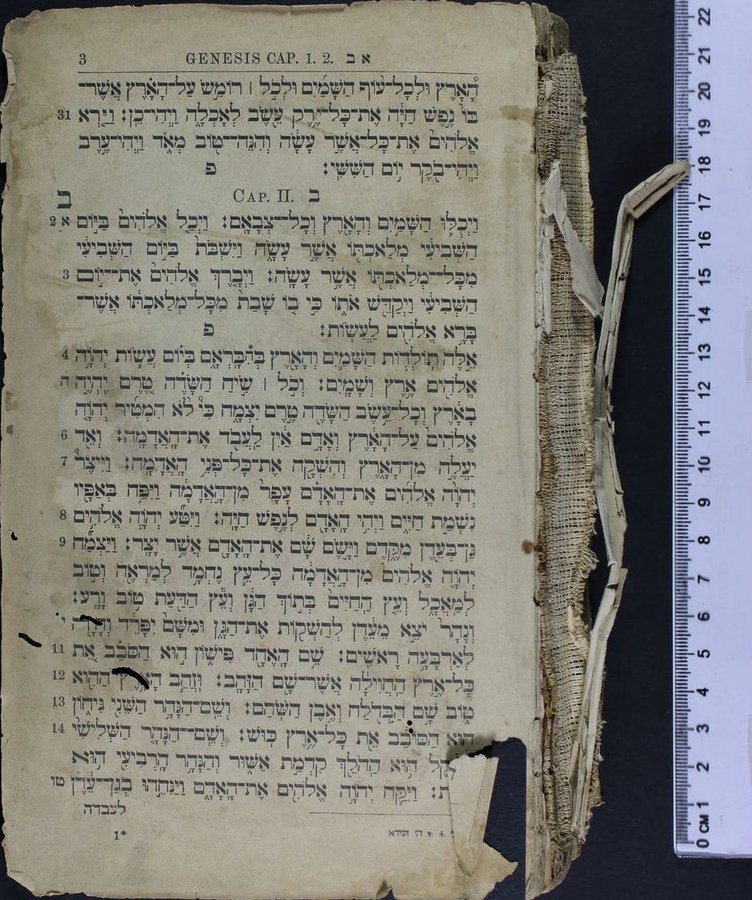 3 GENESIS CAP. 1. 2. א ב
הָ֠אָרֶץ וּלְכָל־ע֨וֹף הַשָּׁמַ֜יִם וּלְכֹ֣ל ׀ רוֹמֵ֣שׂ עַל־הָאָ֗רֶץ אֲשֶׁר־
בּוֹ֙ נֶ֣פֶשׁ חַיָּ֔ה אֶת־כָּל־יֶ֥רֶק עֵ֖שֶׂב לְאָכְלָ֑ה וַֽיְהִי־כֵֽן׃ וַיַּ֤רְא 31
אֱלֹהִים֙ אֶת־כָּל־אֲשֶׁ֣ר עָשָׂ֔ה וְהִנֵּה־ט֖וֹב מְאֹ֑ד וַֽיְהִי־עֶ֥רֶב
וַֽיְהִי־בֹ֖קֶר י֥וֹם הַשִּׁשִּֽׁי׃ פ
CAP. II. ב
ב
וַיְכֻלּ֛וּ הַשָּׁמַ֥יִם וְהָאָ֖רֶץ וְכָל־צְבָאָֽם׃ וַיְכַ֤ל אֱלֹהִים֙ בַּיּ֣וֹם א 2
הַשְּׁבִיעִ֔י מְלַאכְתּ֖וֹ אֲשֶׁ֣ר עָשָׂ֑ה וַיִּשְׁבֹּת֙ בַּיּ֣וֹם הַשְּׁבִיעִ֔י
מִכָּל־מְלַאכְתּ֖וֹ אֲשֶׁ֥ר עָשָֽׂה׃ וַיְבָ֤רֶךְ אֱלֹהִים֙ אֶת־י֣וֹם 3
הַשְּׁבִיעִ֔י וַיְקַדֵּ֖שׁ אֹת֑וֹ כִּ֣י ב֤וֹ שָׁבַת֙ מִכָּל־מְלַאכְתּ֔וֹ אֲשֶׁר־
בָּרָ֥א אֱלֹהִ֖ים לַעֲשֽׂוֹת׃ פ
אֵ֣לֶּה תוֹלְד֧וֹת הַשָּׁמַ֛יִם וְהָאָ֖רֶץ בְּהִבָּֽרְאָ֑ם בְּי֗וֹם עֲשׂ֛וֹת יְהוָ֥ה 4
אֱלֹהִ֖ים אֶ֥רֶץ וְשָׁמָֽיִם׃ וְכֹ֣ל ׀ שִׂ֣יחַ הַשָּׂדֶ֗ה טֶ֚רֶם יִֽהְיֶ֣ה ה
בָאָ֔רֶץ וְכָל־עֵ֥שֶׂב הַשָּׂדֶ֖ה טֶ֣רֶם יִצְמָ֑ח כִּי֩ לֹ֨א הִמְטִ֜יר יְהוָ֤ה
אֱלֹהִים֙ עַל־הָאָ֔רֶץ וְאָדָ֣ם אַ֔יִן לַֽעֲבֹ֖ד אֶת־הָֽאֲדָמָֽה׃ וְאֵ֖ד 6
יַֽעֲלֶ֣ה מִן־הָאָ֑רֶץ וְהִשְׁקָ֖ה אֶֽת־כָּל־פְּנֵ֥י הָֽאֲדָמָֽה׃ וַיִּיצֶר֩ 7
יְהוָ֨ה אֱלֹהִ֜ים אֶת־הָֽאָדָ֗ם עָפָר֙ מִן־הָ֣אֲדָמָ֔ה וַיִּפַּ֥ח בְּאַפָּ֖יו
נִשְׁמַ֣ת חַיִּ֑ים וַיְהִ֥י הָֽאָדָ֖ם לְנֶ֥פֶשׁ חַיָּֽה׃ וַיִּטַּ֞ע יְהוָ֧ה אֱלֹהִ֛ים 8
גַּן־בְּעֵ֖דֶן מִקֶּ֑דֶם וַיָּ֣שֶׂם שָׁ֔ם אֶת־הָֽאָדָ֖ם אֲשֶׁ֥ר יָצָֽר׃ וַיַּצְמַ֞ח 9
יְהוָ֤ה אֱלֹהִים֙ מִן־הָ֣אֲדָמָ֔ה כָּל־עֵ֛ץ נֶחְמָ֥ד לְמַרְאֶ֖ה וְט֣וֹב
לְמַֽאֲכָ֑ל וְעֵ֤ץ הַֽחַיִּים֙ בְּת֣וֹךְ הַגָּ֔ן וְעֵ֕ץ הַדַּ֖עַת ט֥וֹב וָרָֽע׃
וְנָהָר֙ יֹצֵ֣א מֵעֵ֔דֶן לְהַשְׁק֖וֹת אֶת־הַגָּ֑ן וּמִשָּׁם֙ יִפָּרֵ֔ד וְהָיָ֖ה י
לְאַרְבָּעָ֥ה רָאשִֽׁים׃ שֵׁ֥ם הָֽאֶחָ֖ד פִּישׁ֑וֹן ה֣וּא הַסֹּבֵ֗ב אֵ֚ת 11
כָּל־אֶ֣רֶץ הַֽחֲוִילָ֔ה אֲשֶׁר־שָׁ֖ם הַזָּהָֽב׃ וּֽזֲהַ֛ב הָאָ֥רֶץ הַהִ֖וא 12
ט֑וֹב שָׁ֥ם הַבְּדֹ֖לַח וְאֶ֥בֶן הַשֹּֽׁהַם׃ וְשֵֽׁם־הַנָּהָ֥ר הַשֵּׁנִ֖י גִּיח֑וֹן 13
ה֣וּא הַסּוֹבֵ֔ב אֵ֖ת כָּל־אֶ֥רֶץ כּֽוּשׁ׃ וְשֵׁ֨ם־הַנָּהָ֤ר הַשְּׁלִישִׁי֙ 14
ה֥וּא הַֽהֹלֵ֖ךְ קִדְמַ֣ת אַשּׁ֑וּר וְהַנָּהָ֥ר הָֽרְבִיעִ֖י ה֥וּא
וַיִּקַּ֛ח יְהוָ֥ה אֱלֹהִ֖ים אֶת־הָֽאָדָ֑ם וַיַּנִּחֵ֣הוּ בְגַן־עֵ֔דֶן טו
לעבדה
1*
22
21
20
19
18
17
16
15
14
13
12
11
10
9
8
7
6
5
4
3
2
1
0 CM